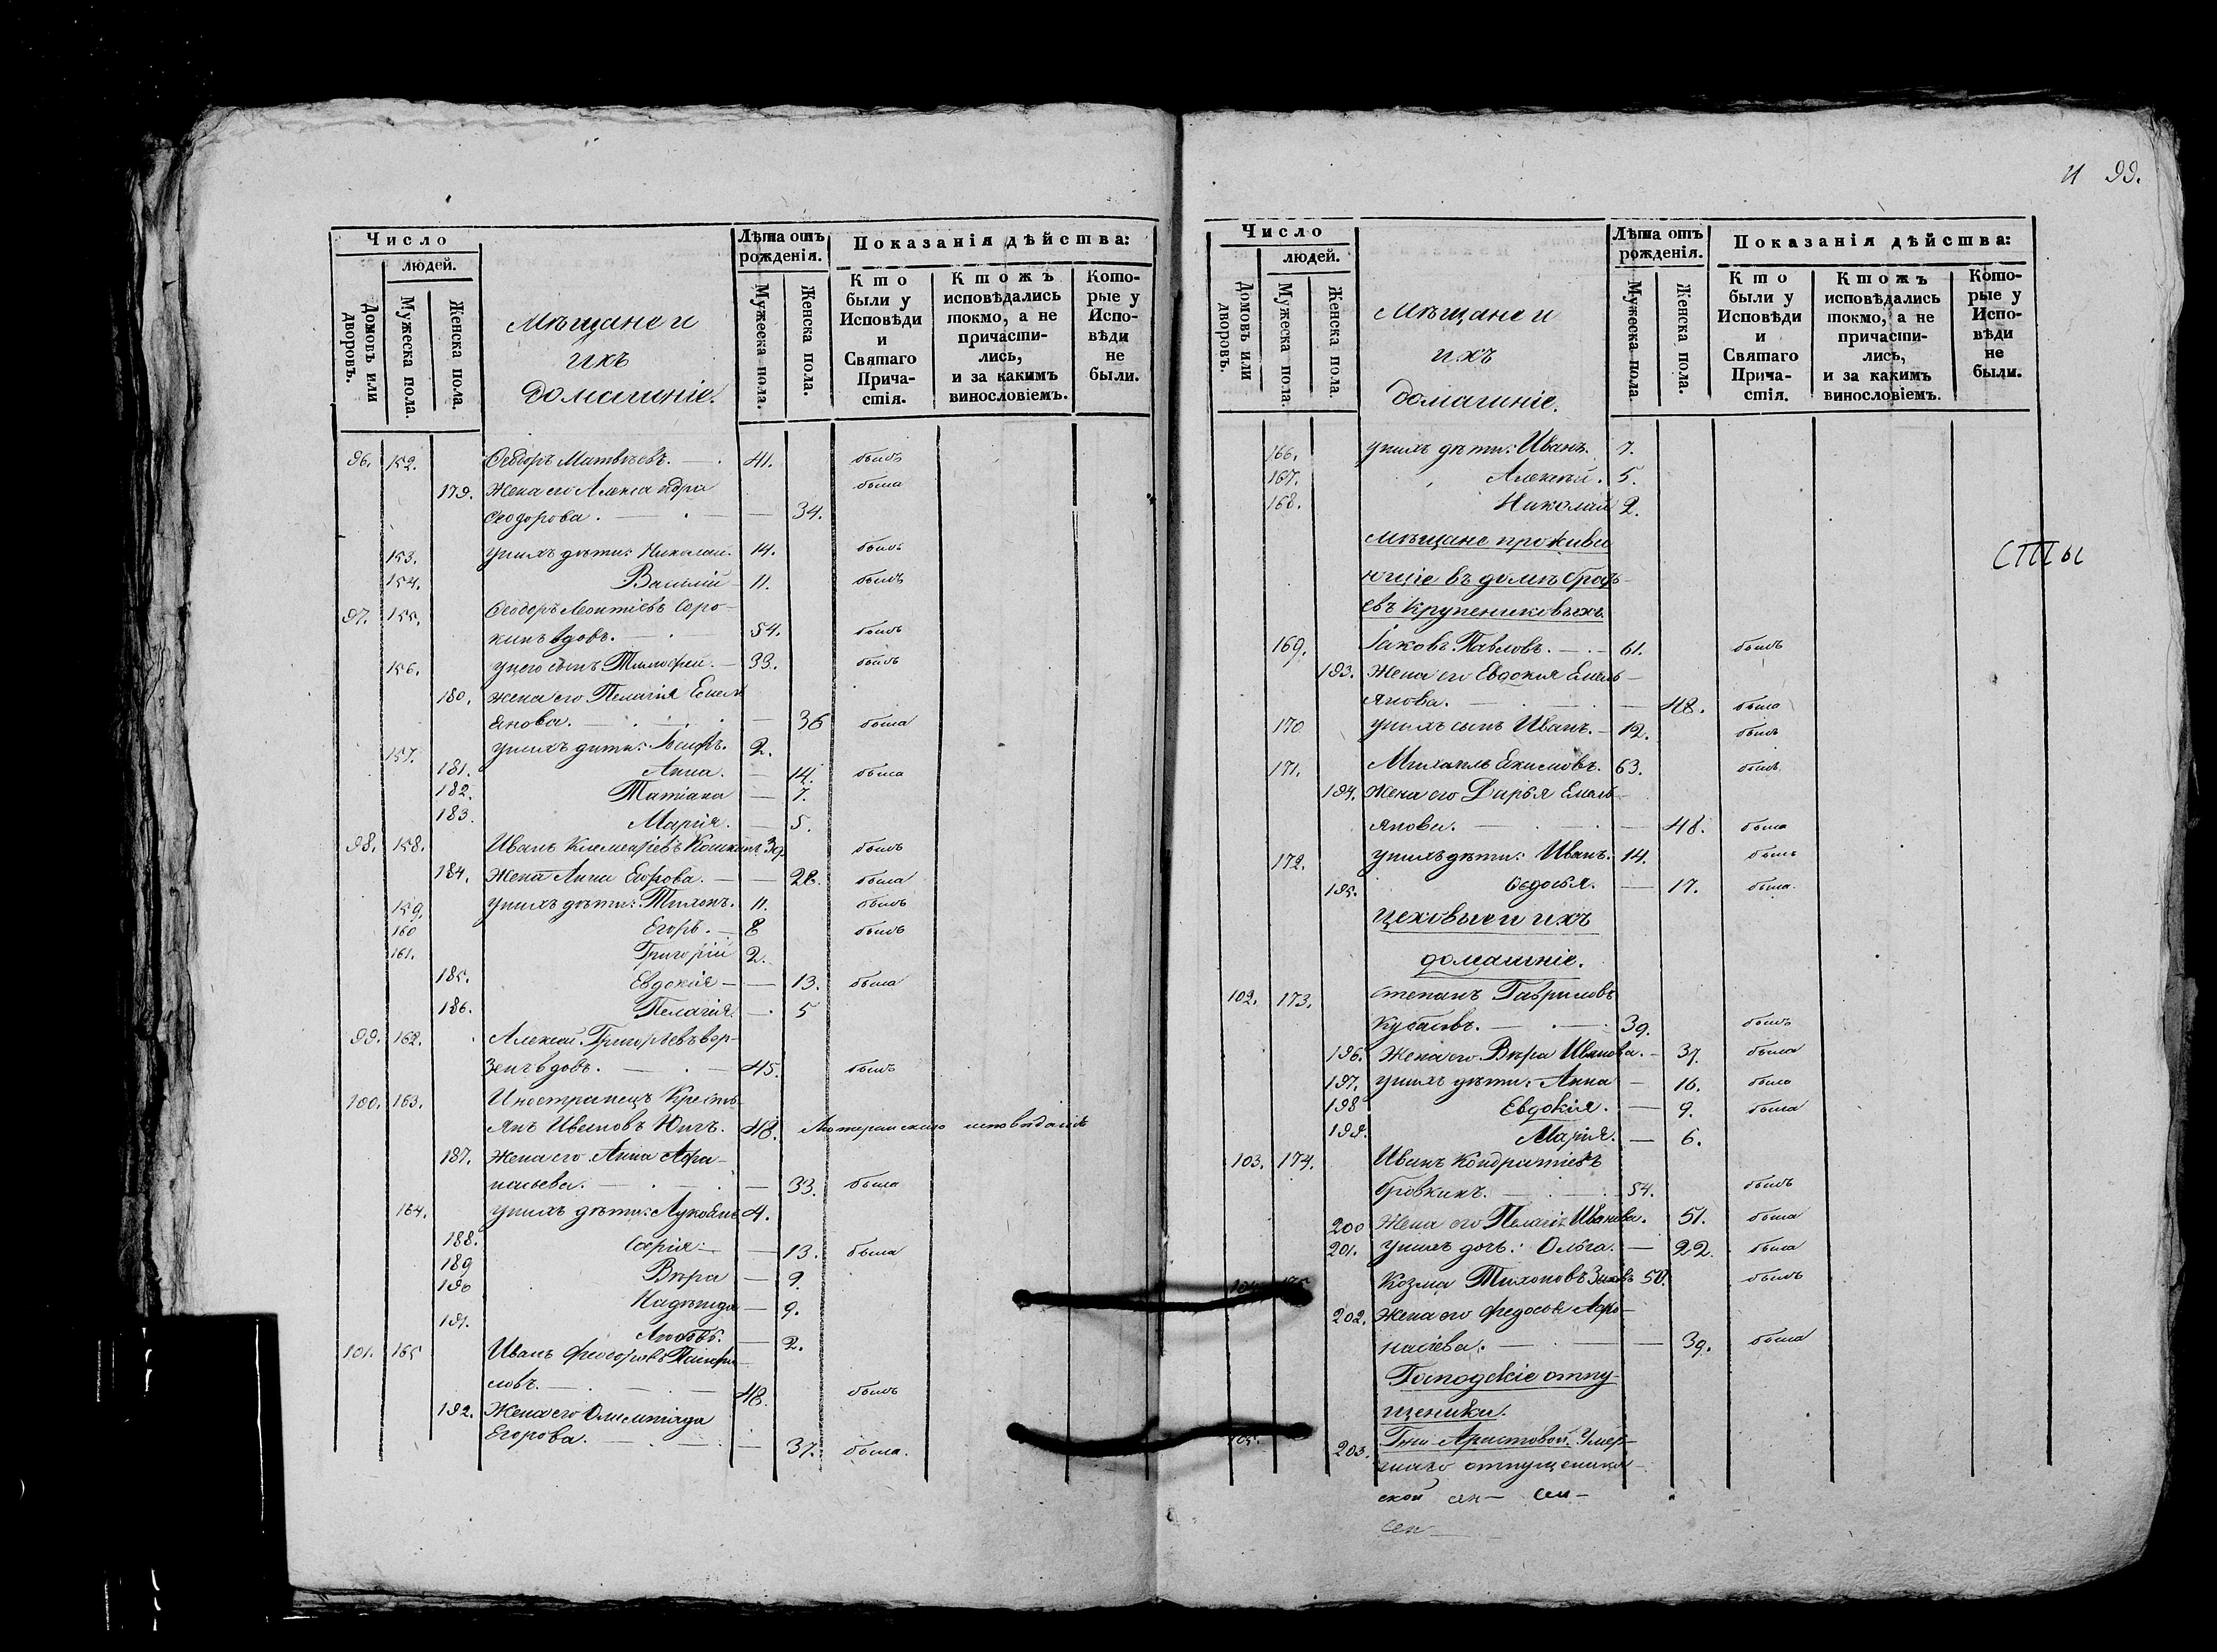 Число
людей.
Домовъ или дворовъ.
Мужеска пола.
Женска пола.
Мѣщане и
ихъ
домашніе.
Лѣта отъ рожденія.
Мужеска пола.
Женска пола.
Показанія дѣйства:
Кто были у Исповѣди и Святаго Прича-стія.
Ктожъ исповѣдались токмо, а не причасти-лись, и за какимъ винословіемъ.
Кото-рые у Испо-вѣди не были.
96. 152. Ѳеодоръ Матвѣевъ. — 41. былъ
179. Жена его Александра была
Ѳеодорова. — — 34.
153. у нихъ дѣти: Николай. 14. былъ
154. Василій 11. былъ
97. 155. Ѳеодоръ Леонтіевъ Соро-
кинъ вдовъ. — 54. былъ
156. у него сынъ Тимоѳей. — 33. былъ
180. Жена его Пелагія Емель
янова. — — 36 была
157. у нихъ дѣти: 2.
181. Анна. — 14. была
182. Татіана — 7.
183. Марія. — 5.
98. 158. Иванъ Климентіевъ Кошкинъ 39. былъ
184. Жена Анна Егорова. — — 28. была
159. у нихъ дѣти: Тихонъ. 11. былъ
160 Егоръ. — 8 былъ
161. Григорій 2.
185. Евдокія — — 13. была
186. Пелагія. — 5
99. 162. Алексѣй Григорьевъ Вер-
зенъ вдовъ. — 45. былъ
100. 163. Иностранецъ Кристь-
янъ Ивановъ Юнгъ. 48. Лютеранскаго исповѣданія
187. Жена его Анна Аѳа-
насьева. — — 33. была
164. у нихъ дѣти: Лукоянъ 4.
188. Софія — — 13. была
189 Вѣра — 9.
190 Надежда — 9.
191. Любовь. — 2.
101. 165 Иванъ Ѳеодоровъ
ловъ. — 48. былъ
192. Жена его Олимпіада
Егорова. — — 37. была.
и 99.
Число
людей.
Домовъ или дворовъ.
Мужеска пола.
Женска пола.
Мѣщане и
ихъ
домашніе.
Лѣта отъ рожденія.
Мужеска пола.
Женска пола.
Показанія дѣйства:
Кто были у Исповѣди и Святаго Прича-стія.
Ктожъ исповѣдались токмо, а не причасти-лись, и за какимъ винословіемъ.
Кото-рые у Испо-вѣди не были.
166. у нихъ дѣти: Иванъ. 7.
167. Алексѣй. 5.
168. Николай 2.
Мѣщане прожива
ющіе въ домѣ брать-
евъ Крупениковыхъ.
169. Іаковъ Павловъ. — 61. былъ
193. Жена его Евдокія Емель-
янова. — — 48. была
170 у нихъ сынъ Иванъ. — 12. былъ
171. Михаилъ Екимовъ. 63. былъ
194. Жена его Дарья Емель-
янова. — — 48. была
172. у нихъ дѣти: Иванъ. 14. былъ
195. Ѳедосья. — 17. была.
Цеховые и ихъ
домашніе.
102. 173. Степанъ Гавриловъ
— 39. былъ
196. Жена его Вѣра Иванова. — 37. была
197. у нихъ дѣти: Анна — 16. была
198 Евдокія. — 9. была
199. Марія. — 6.
103. 174. Иванъ Кондратіевъ
Бровкинъ. — 54. былъ
200 Жена его Пелагія Иванова. 51. была
201. у нихъ дочь: Ольга. — 22. была
104. 175. Козма Тихоновъ Зыковъ 50. былъ
202. Жена его Ѳедосья Аѳо-
насіева. — — 39. была
Господскіе отпу-
щеники.
105. 203. Гжи Аристовой.
отпущеница
ской